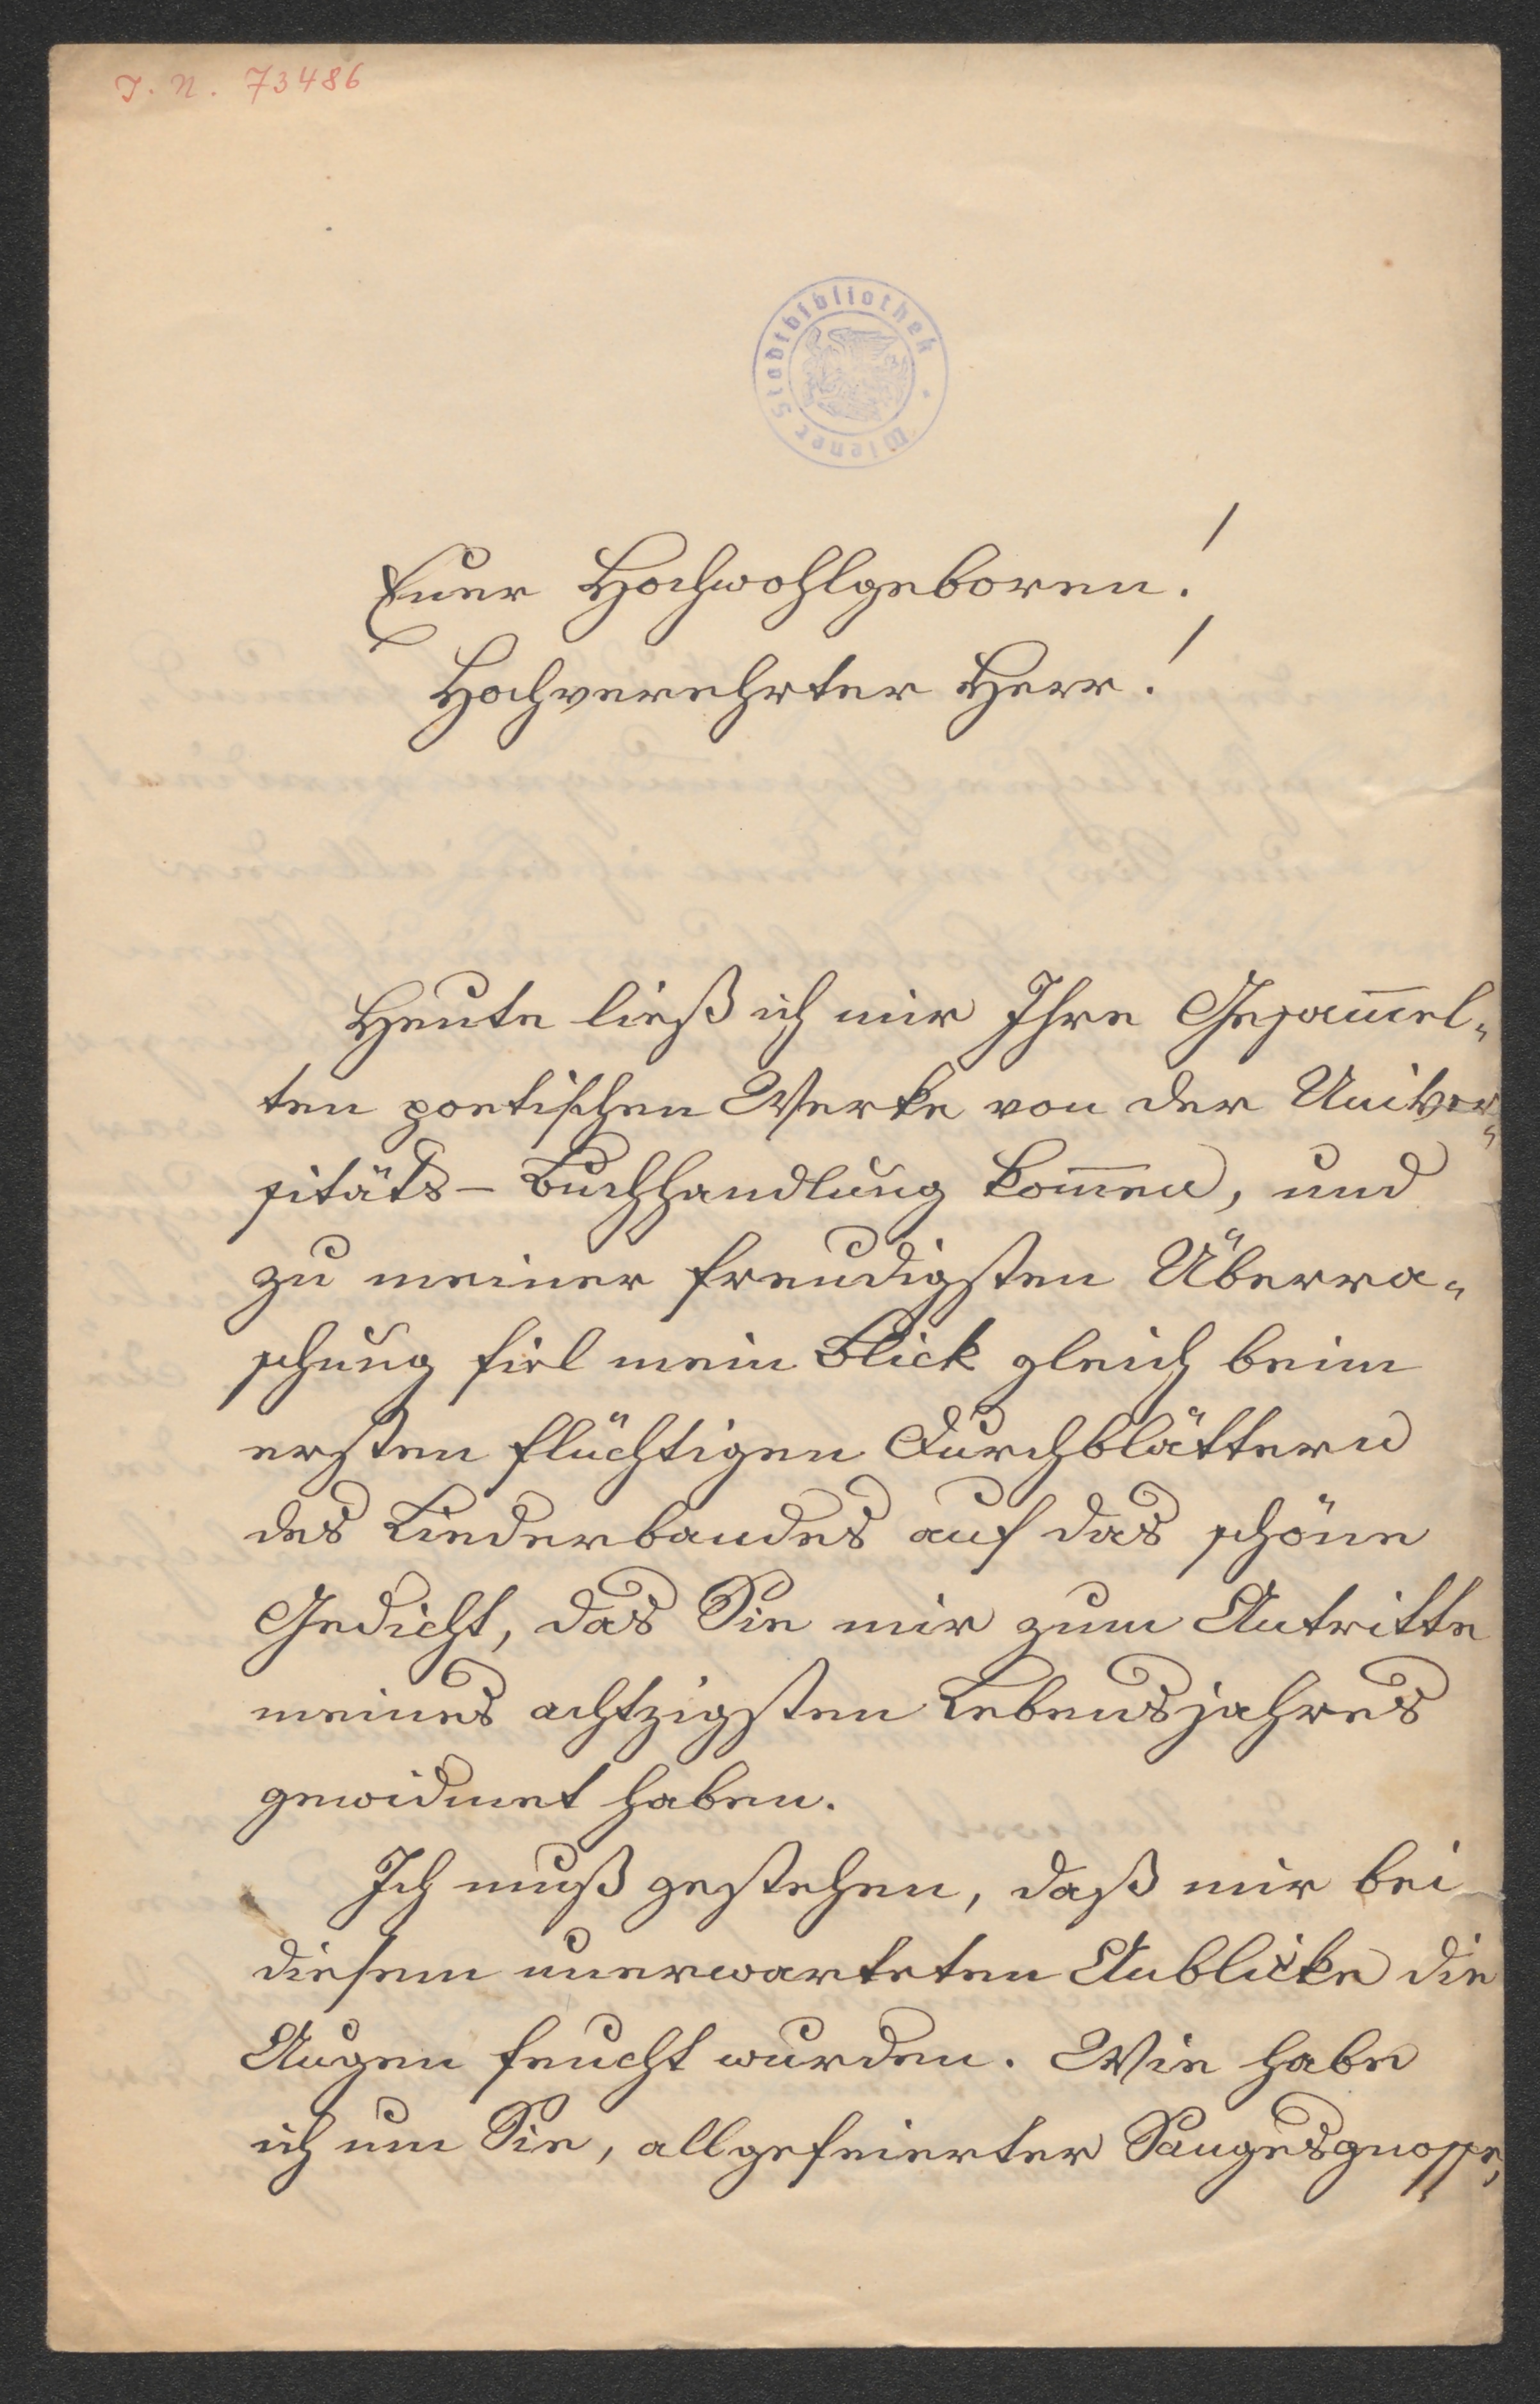 I. N. 73486
Wiener Stadtbibliothek
Euer Hochwohlgeboren!
Hochverehrter Herr!
Heute ließ ich mir Ihre Gesam̄el-
ten poetischen Werke von der Univer-
sitäts-Buchhandlung kom̄en, und
zu meiner freudigsten Überra-
schung fiel mein Blick gleich beim
ersten flüchtigen Durchblättern
des Liederbandes auf das schöne
Gedicht, das Sie mir zum Antritte
meines achtzigsten Lebensjahres
gewidmet haben.
Ich muß gestehen, daß mir bei
diesem unerwarteten Anblicke die
Augen feucht wurden. Wie habe
ich um Sie, allgefeierter Sangesgnosse,